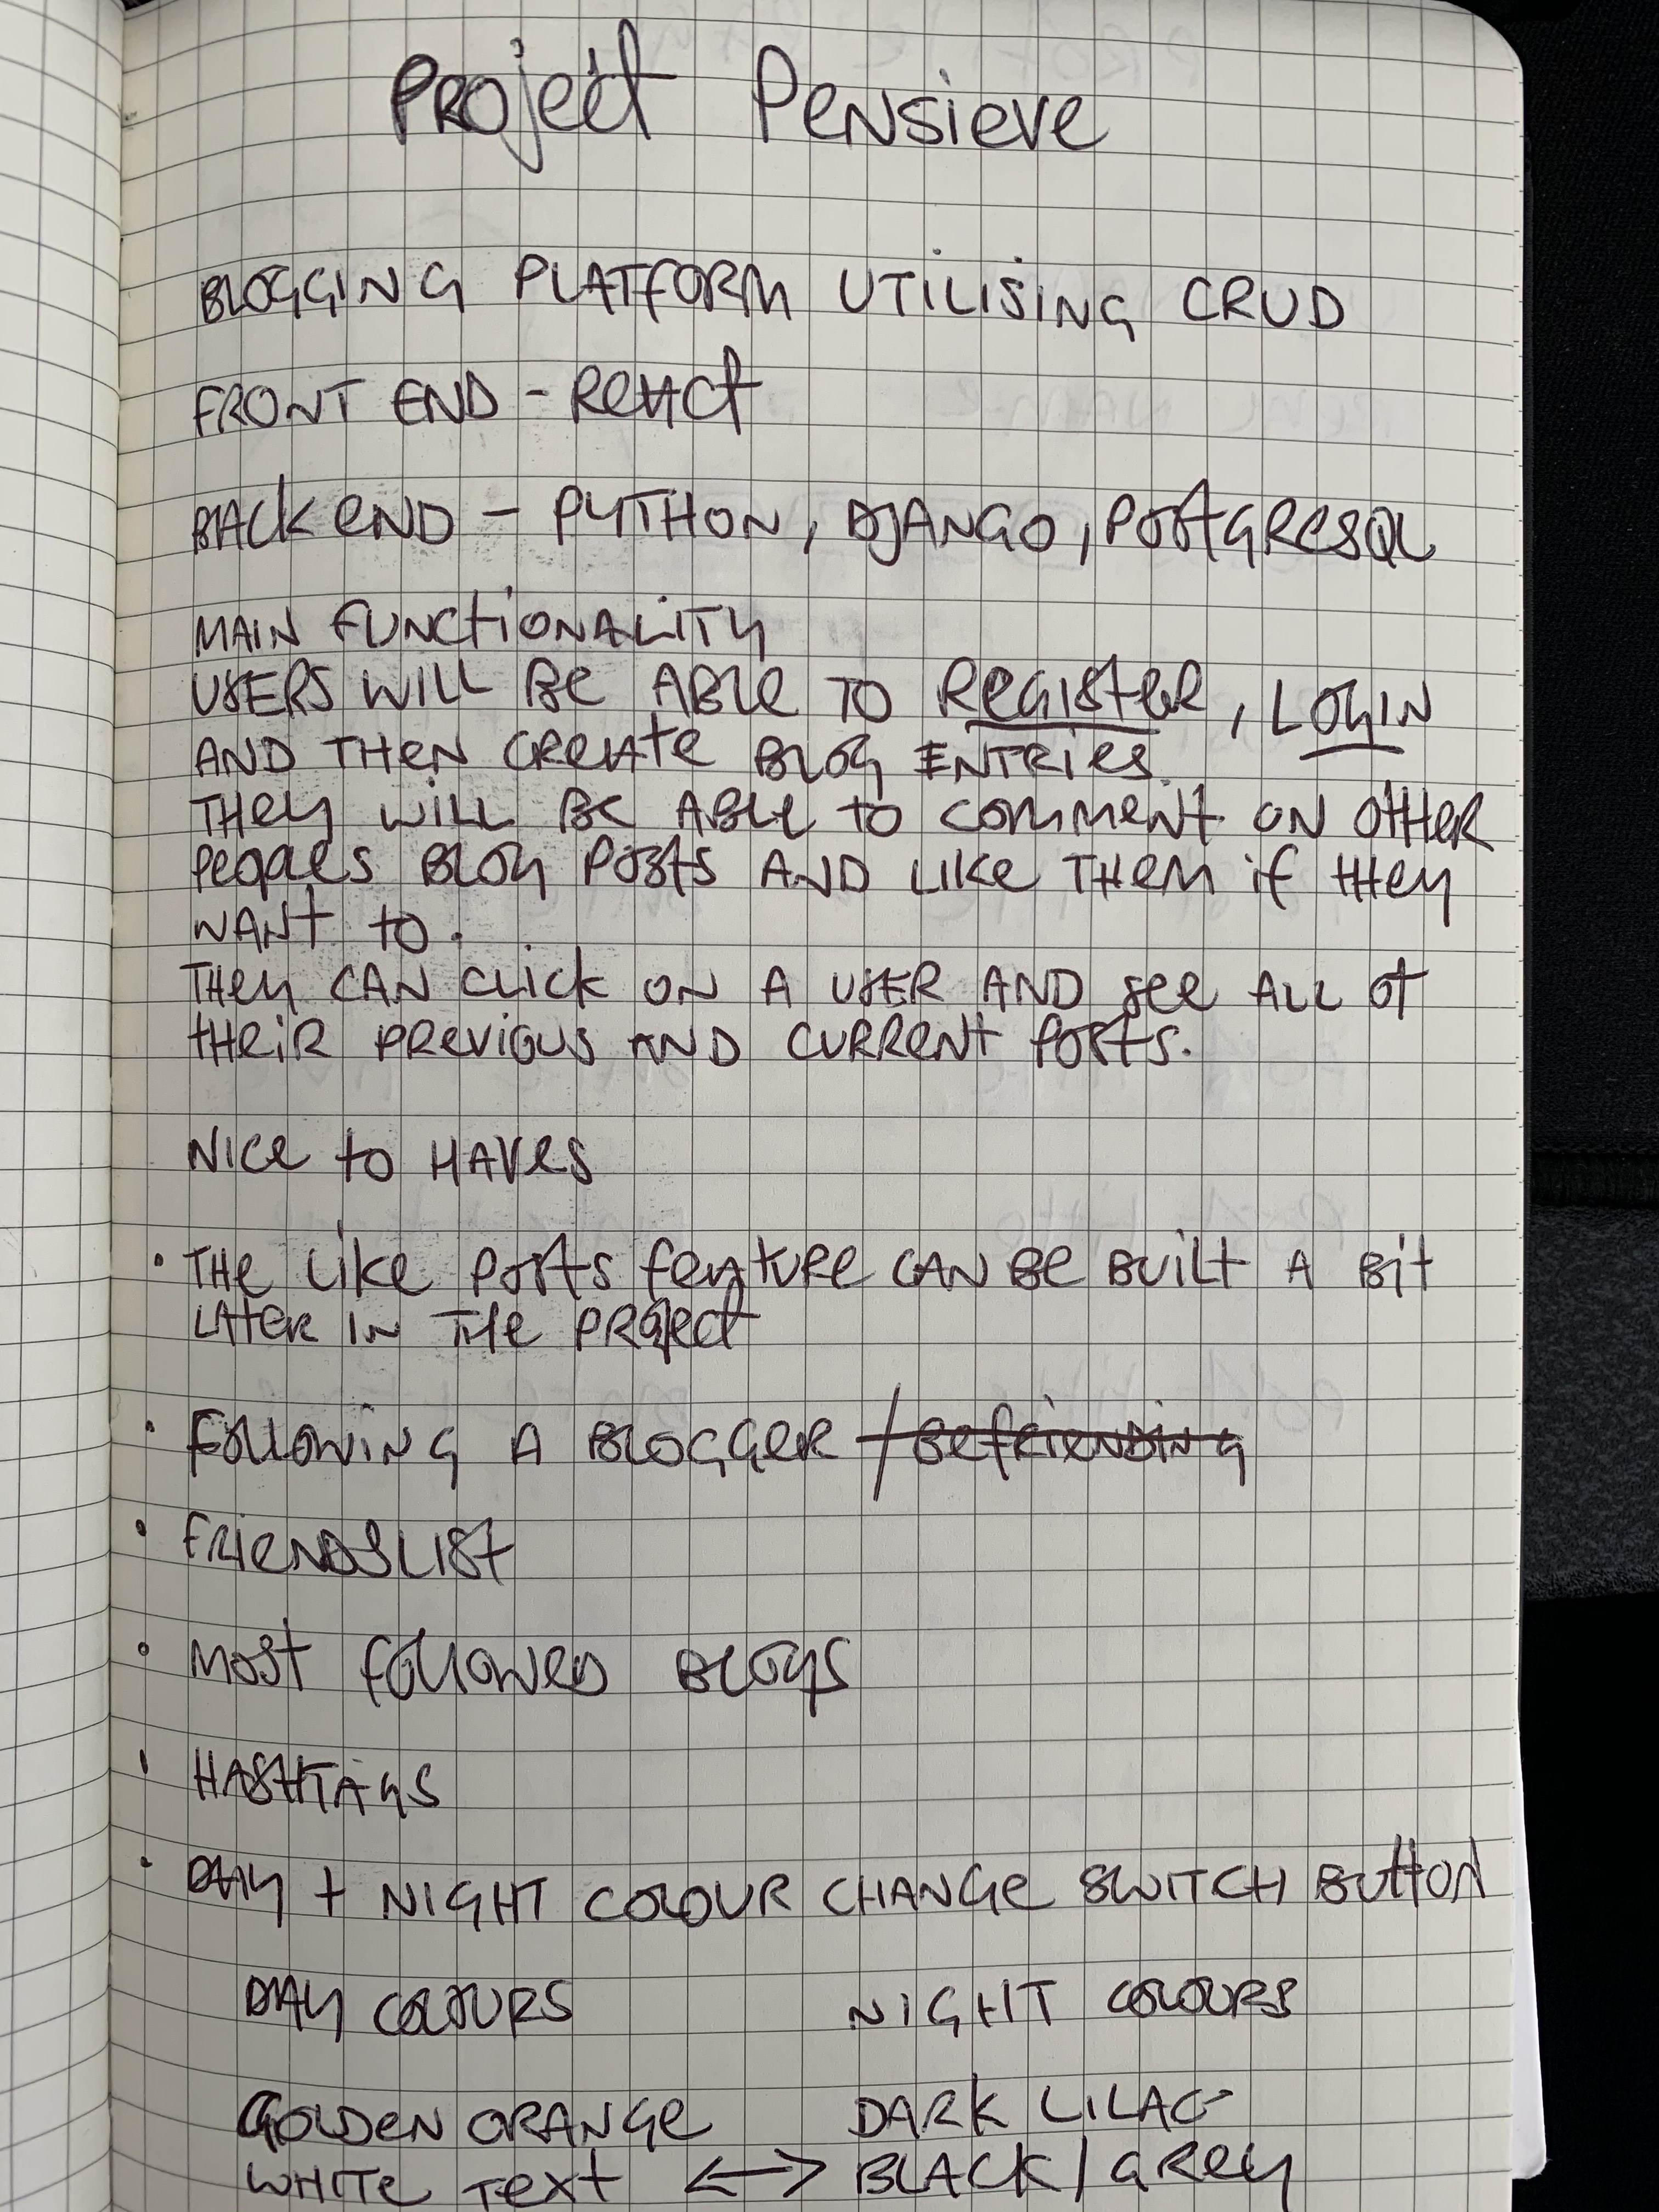 Project Pensieve
BLOGGING PLATFORM UTILISING CRUD
FRONT END - React
BACK END - PYTHON, DJANGO, PostGRESQL
MAIN FUNCTIONALITY
USERS WILL BE ABLE TO REGISTER, LOGIN
AND THEN CREATE BLOG ENTRIES.
THEY WILL BE ABLE to comment ON OTHER
PEOPLES BLOG POSTS AND LIKE THEM if they
WANT to.
THEY CAN CLICK ON A USER AND see ALL of
their PREVIOUS AND CURRENT POSTS.
NICE to HAVES
• THE LIKE POSTS feature CAN BE BUILT A Bit
LATER IN THE PROJECT
• FOLLOWING A BLOGGER / Befriending
• FRIENDSLIST
• MOST FOLLOWED BLOGS
• HASHTAGS
• DAY + NIGHT COLOUR CHANGE SWITCH BUTTON
DAY COLOURS NIGHT COLOURS
GOLDEN ORANGE DARK LILAC
WHITE TEXT <-> BLACK/GREY